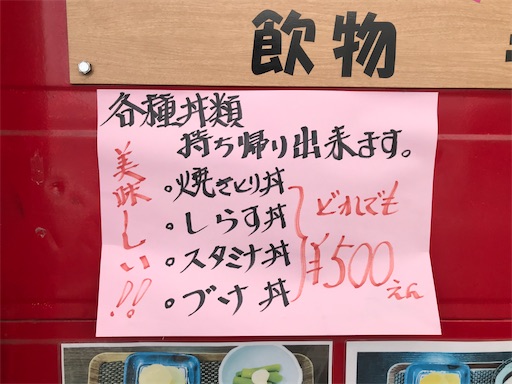 飲物
各種丼類
持ち帰り出来ます。
美味しい!!
。焼きとり丼
。しらす丼
。スタミナ丼
。づけ丼
どれでも
¥500えん